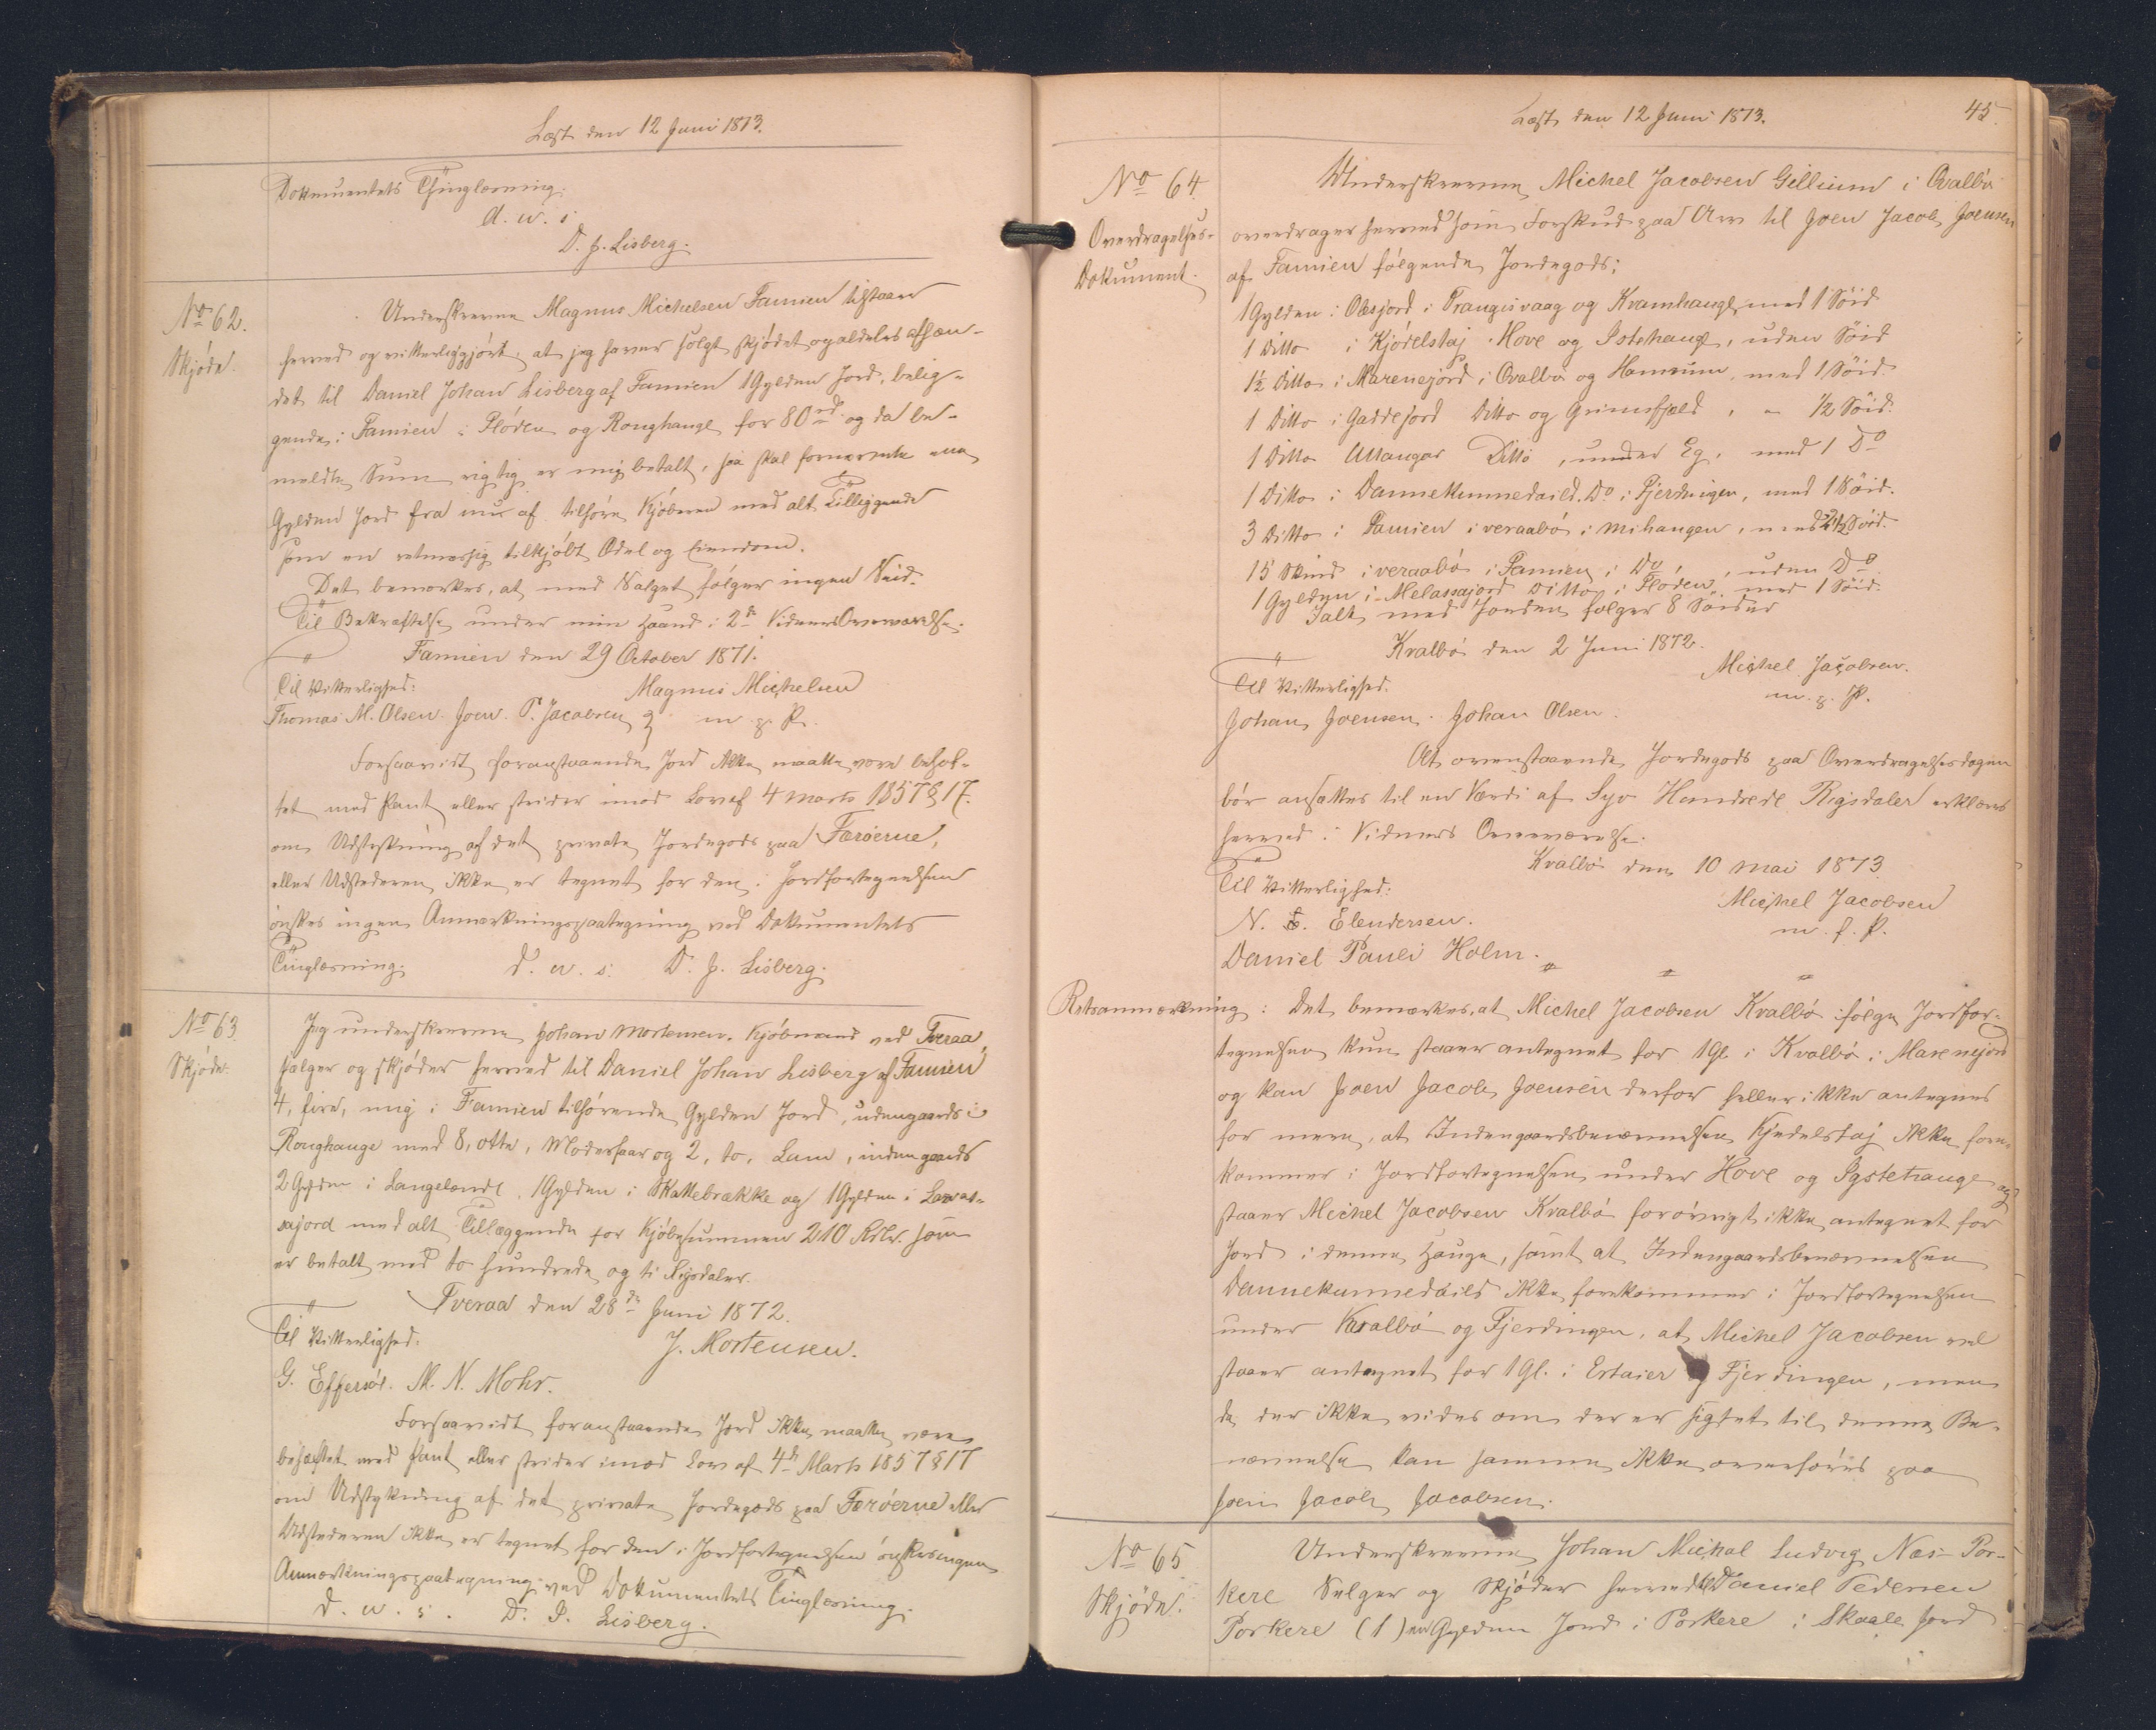 Læst den 12 Juni 1873.
Dokumentets Thinglæsning.
d. u. s.
D. J. Lisberg.
No 62.
Skjøde.
Underskrevne Magnus Michelsen Famien tilstaaer
herved og vitterliggjört, at jeg haver solgt skjødet og aldeles afhæn-
det til Daniel Johan Lisberg af Famien 1 Gylden Jord, belig-
gende i Famien i Flöden og Roughauge for 80 rd. og da be-
meldte Sum rigtig er mig betalt, saa skal fornævnte ene
Gylden Jord fra nu af tilhöre Kjöberen med alt Tilliggende
som en retmæssig tilkjöbt Odel og Eiendom.
Det bemærkes, at med Salget følger ingen Søid.
Til Bekræftelse under min Haand i 2de Vidners Overværelse.
Famien den 29 October 1871.
Til Vitterlighed: Magnus Michelsen
Thomas M. Olsen. Joen P. Jacobsen m. p. P.
Forsaavidt foranstaaende Jord ikke maatte være behef-
tet med Pant eller strider imod Lov af 4 Marts 1857 § 17.
om Udstykning af det private Jordegods paa Færöerne,
eller Udstederen ikke er tegnet for den i Jordfortegnelsen
önskes ingen Anmærkningspaategning ved Dokumentets
Tinglæsning. d. u. s. D. J. Lisberg.
No 63
Skjöde.
Jeg underskrevne Johan Mortensen, Kjöbmand ved Tveraa,
sælger og skjøder herved til Daniel Johan Lisberg af Famien
4, fire, mig i Famien tilhörende Gylden Jord, udengaards i
Roughauge med 8, otte, Moderfaar og 2, to, Lam, indengaards
2 Gylden i Langelandi, 1 Gylden i Skattebrække og 1 Gylden i
sajord med alt Tillæggende for Kjöbesummen 210 Rdlr. som
er betalt med to hundrede og ti Rigsdaler.
Tveraa den 28de Juni 1872.
Til Vitterlighed: J. Mortensen.
G. Effersöe. M. N. Mohr.
Forsaavidt foranstaaende Jord ikke maatte være
behæftet med Pant eller strider imod Lov af 4de Marts 1857 § 17
om Udstykning af det private Jordegods paa Færöerne eller
Udstederen ikke er tegnet for den i Jordfortegnelsen önskes ingen
Anmærkningspaategning ved Dokumentets Tinglæsning.
d. u. s. D. J. Lisberg.
Læst den 12 Juni 1873. 45.
No 64.
Overdragelses-
Dokument.
Underskrevne Michel Jacobsen Gillium i Qvalbö
overdrager herved som Forskud paa Arv til Joen Jacob Joensen
af Famien følgende Jordegods;
1 Gylden i Olesjord i Trangisvaag og Kvamhauge med 1 Söid
1 Ditto i Kjödelstaj Hove og Istehauge, uden Söid
1½ Ditto i Marenejord i Qvalbö og, med 1 Söid.
1 Ditto i Gaddejord Ditto og Grimsfjeld, - ½ Söid.
1 Ditto Uttangar Ditto, under Eg, med 1 Do
1 Ditto i Dannekunnedaild. Do i Fjerdingen, med 1 Söid.
3 Ditto i Famien i veraabö i Mihaugen, med 2½ Söid.
15 Skind i veraabö i Famien i Do, uden Do
1 Gylden i Melassajord Ditto i Flöden med 1 Söid.
Ialt med Jorden følger 8 Söider
Kvalbö den 2 Juni 1872.
Til Vitterlighed. Michel Jacobsen.
Johan Joensen. Johan Olsen. m. p. P.
At ovenstaaende Jordegods paa Overdragelsesdagen
bör ansættes til en Værdi af Syv Hundrede Rigsdaler erklæres
herved i Vidners Overværelse.
Kvalbö den 10 Mai 1873.
Til Vitterlighed: Michel Jacobsen
N. E. Elendersen. m. f. P.
Daniel Pauli Holm.
Retsanmærkning: Det bemærkes, at Michel Jacobsen Kvalbö ifølge Jordfor-
tegnelsen kun staaer antegnet for 1 Gl. i Kvalbö i Marenejord
og kan Joen Jacob Joensen derfor heller ikke antegnes
for mere, at Indengaardsbenævnelsen Kjedelstaj ikke fore-
kommer i Jordfortegnelsen under Hove og Igstehauge og
staaer Michel Jacobsen Kvalbö forøvrigt ikke antegnet for
Jord i denne Hauge, samt at Indengaardsbenævnelsen
Dannekunnedaild ikke forekommer i Jordfortegnelsen
under Kvalbö og Fjerdingen, at Michel Jacobsen vel
staaer antegnet for 1 Gl. i Ertaier og Fjerdingen, men
da der ikke vides om der er sigtet til denne Be-
nævnelse kan samme ikke overføres paa
Joen Jacob Jacobsen.
No 65
Skjöde.
Underskrevne Johan Michal Ludvig Næs Por-
kere Sælger og Skjöder herved til Daniel Pedersen
Porkere (1) en Gylden Jord i Porkere i Skaale Jord